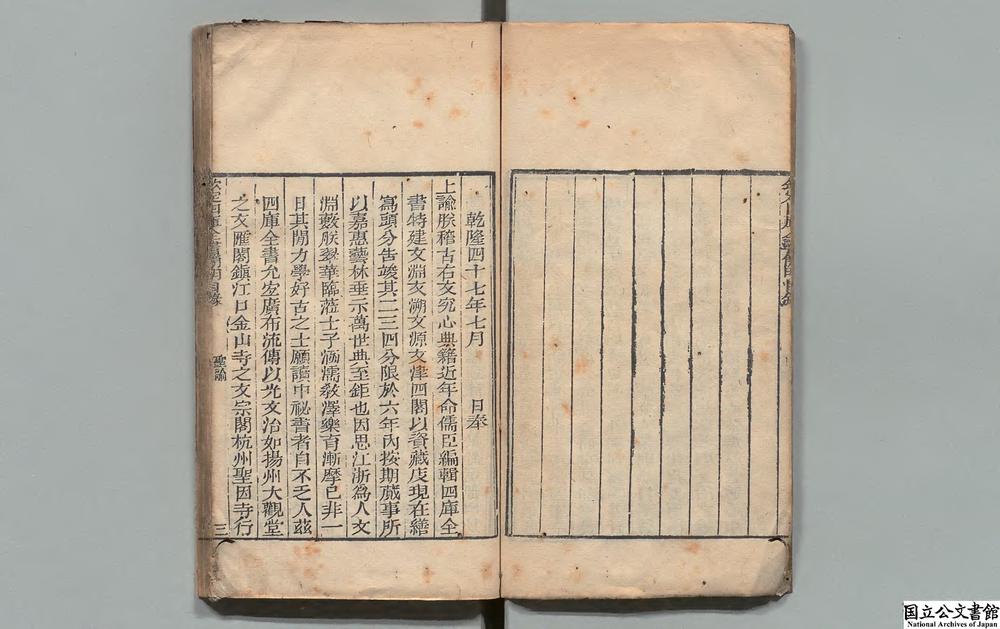 乾隆四十七年七月　日奉
上諭朕稽古右文究心典籍近年命儒臣編輯四庫全
書特建文淵文溯文源文津四閣以資藏庋現在繕
寫頭分告竣其二三四分限於六年內按期蕆事所
以嘉惠藝林垂示萬世典至鉅也因思江浙為人文
淵藪朕翠華臨蒞士子涵濡教澤樂育漸摩已非一
日其間力學好古之士願讀中祕書者自不乏人茲
四庫全書允宜廣布流傳以光文治如揚州大觀堂
之文匯閣鎮江口金山寺之文宗閣杭州聖因寺行
欽定四庫全書簡明目錄
聖諭
三
国立公文書館
National Archives of Japan